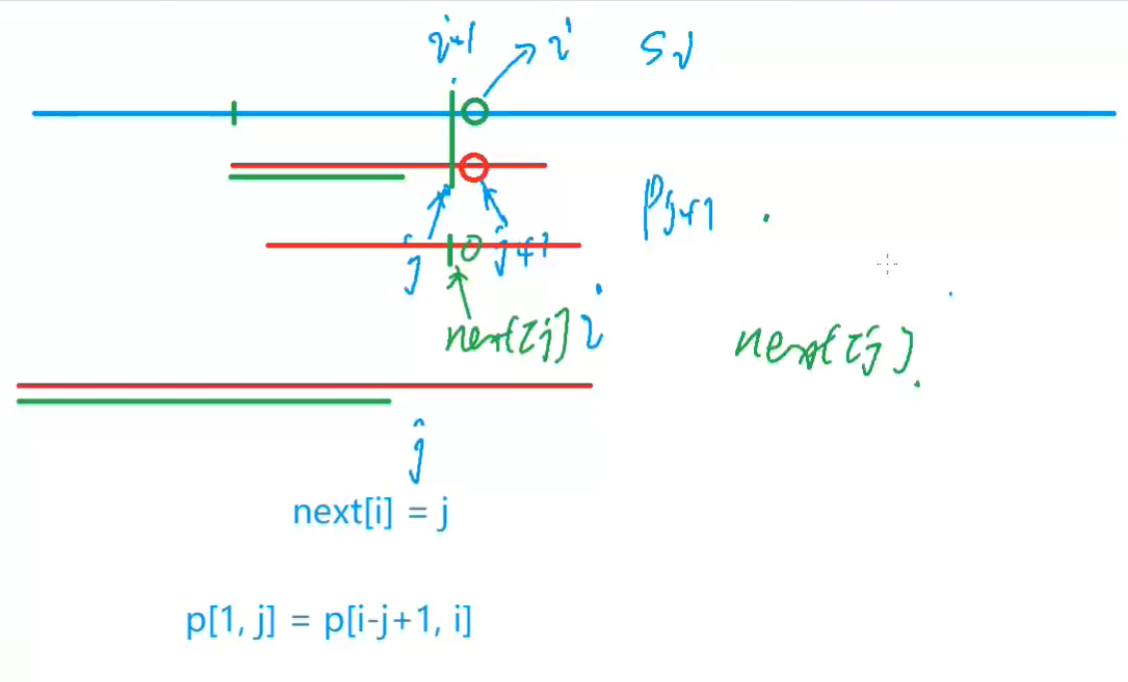 i-1 i Si
Pj+1
j j+1
next[j] i next[j]
j
next[i] = j
p[1, j] = p[i-j+1, i]